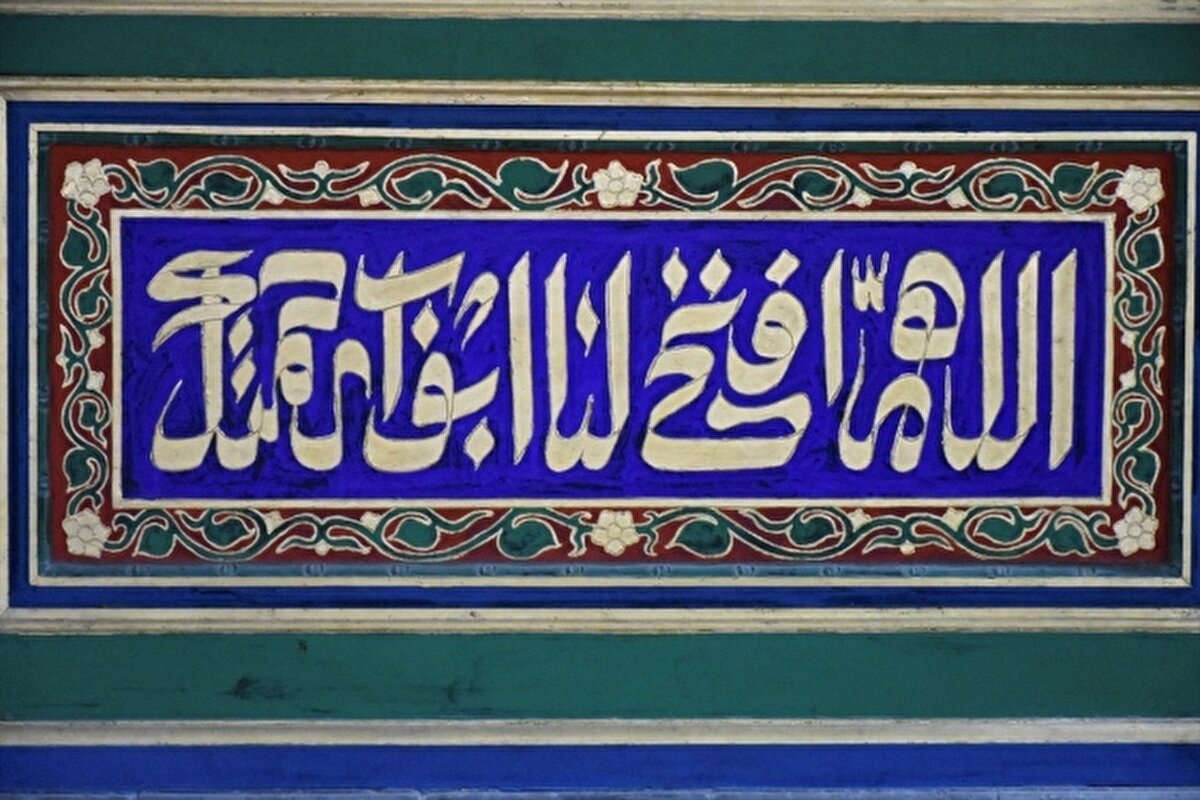 اللهم افتح لنا ابواب رحمتك